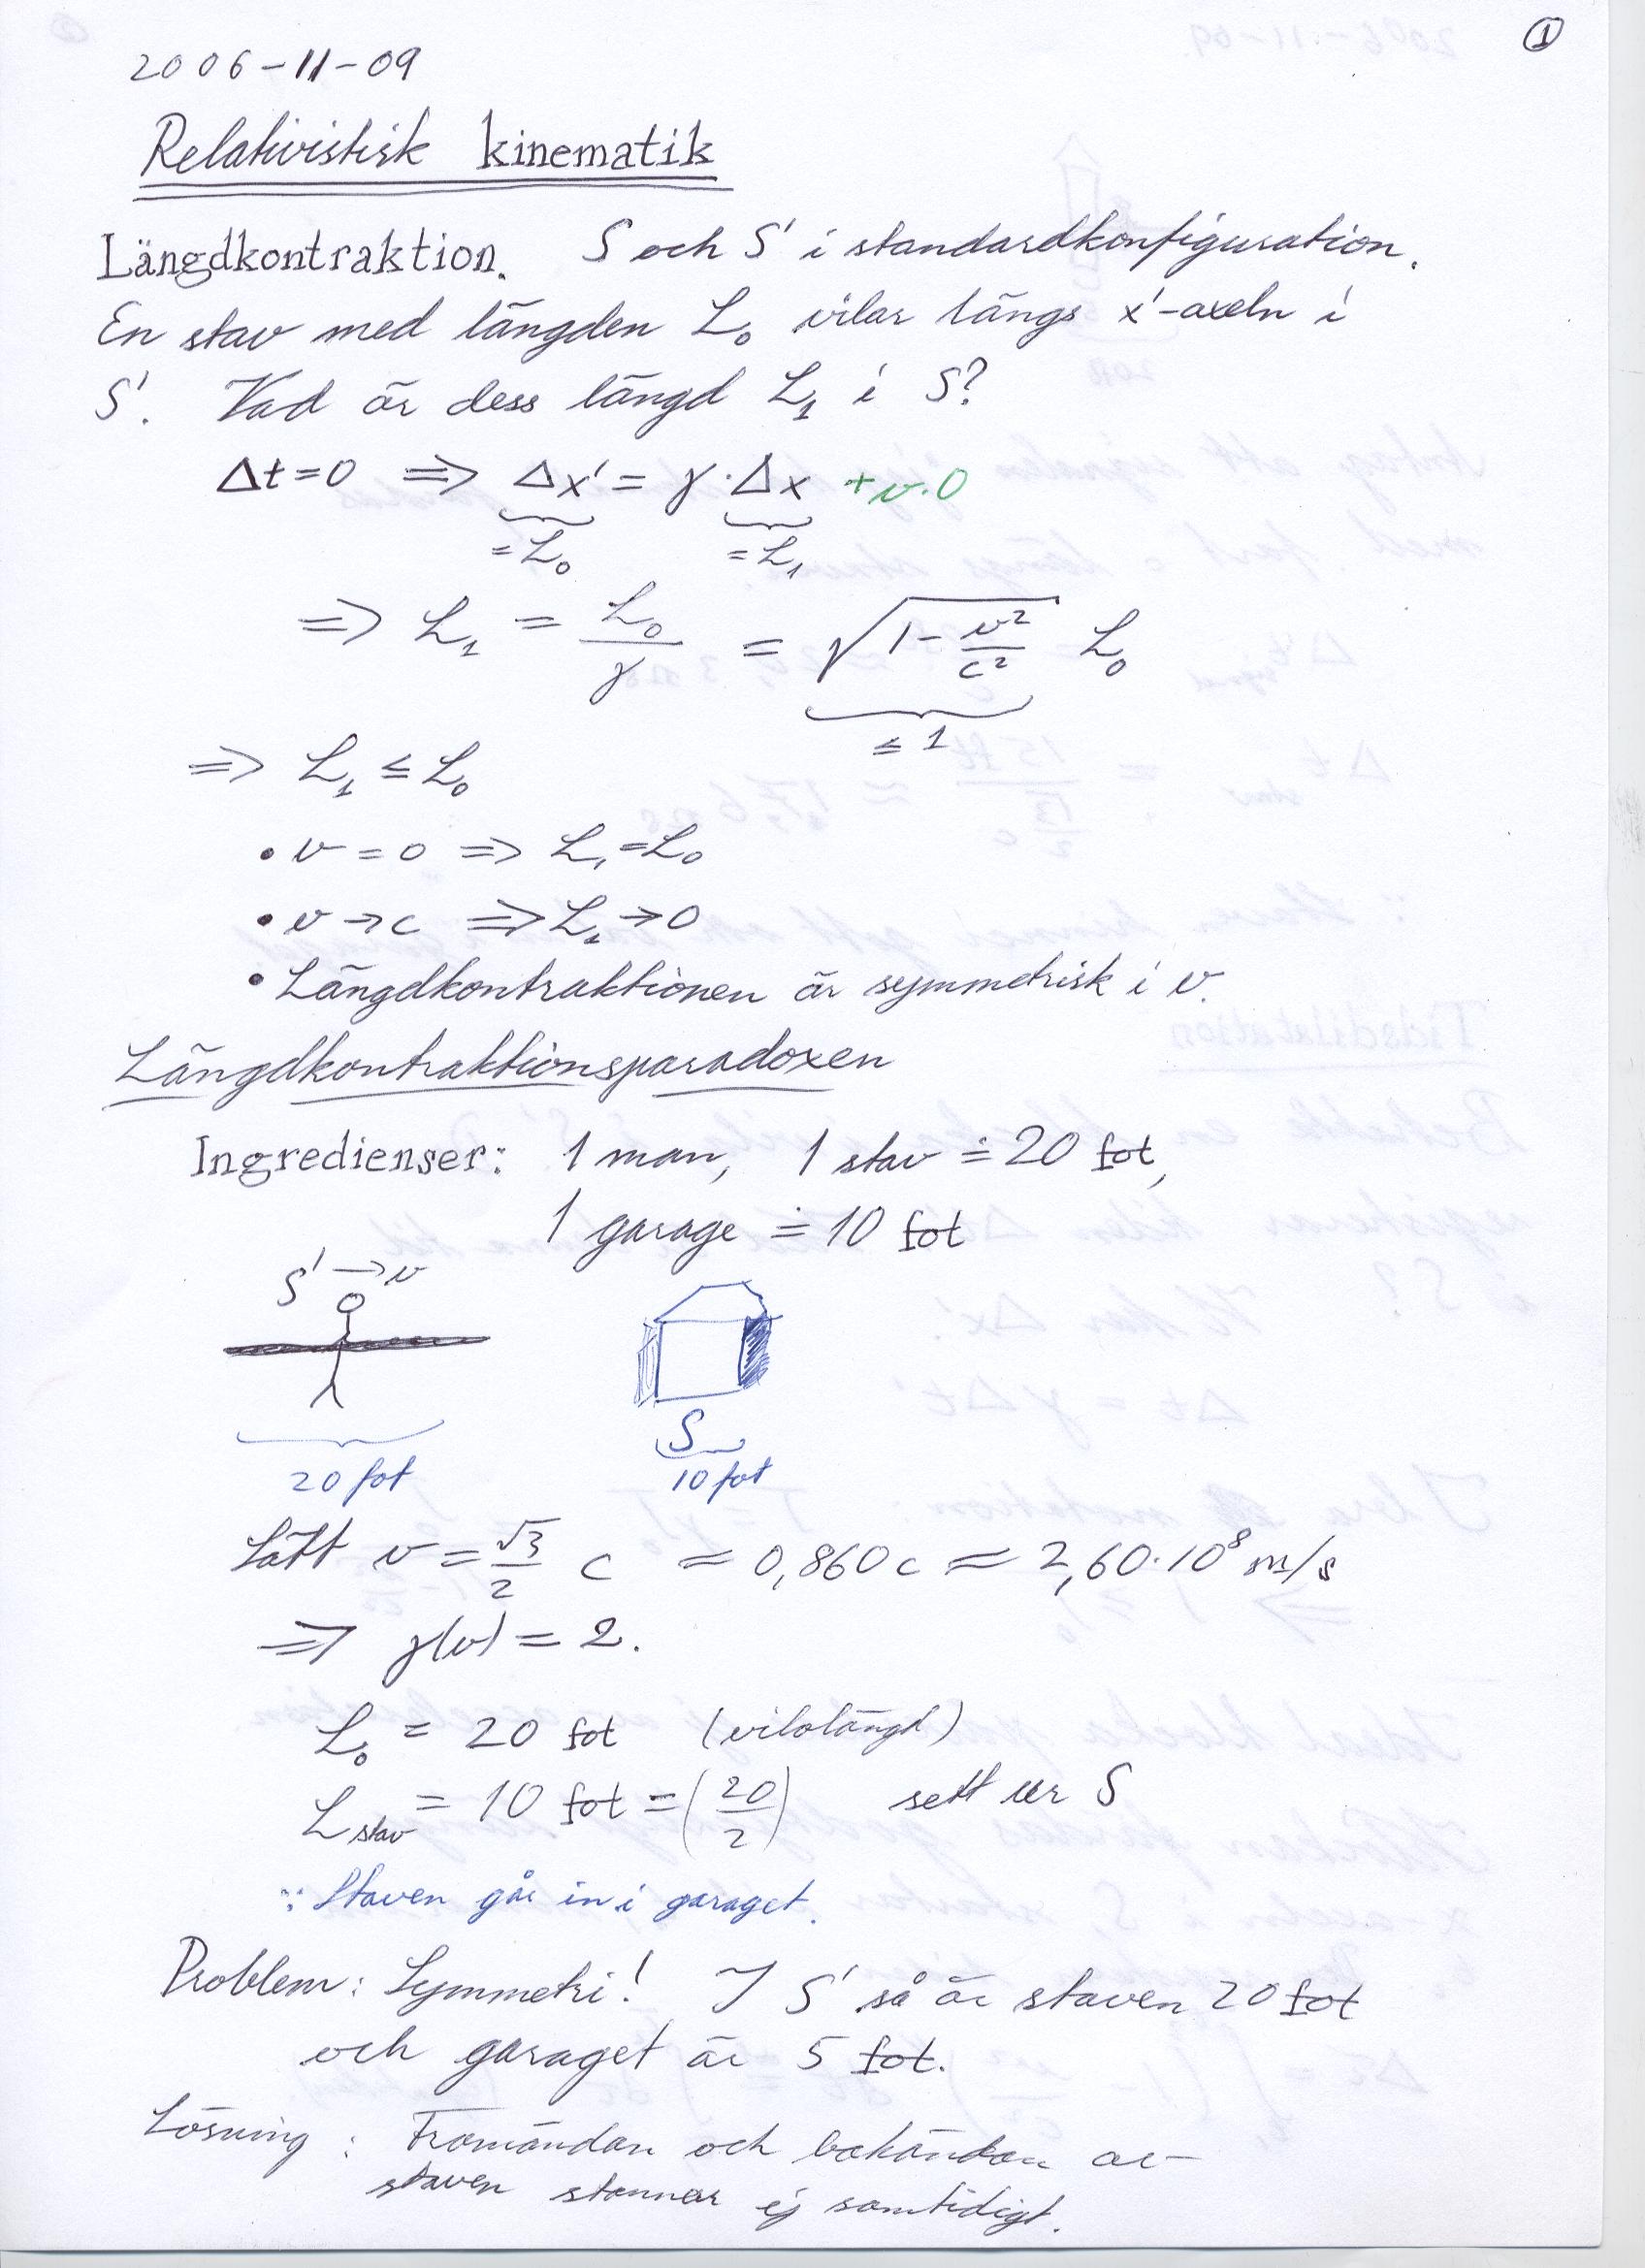 ①
2006-11-09
Relativistisk kinematik
Längdkontraktion. S och S' i standardkonfiguration.
En stav med längden L₀ vilar längs x'-axeln i
S'. Vad är dess längd L₁ i S?
Δt=0 ⇒ Δx' = γ·Δx +v·0
=L₀ =L₁
⇒ L₁ = L₀/γ = √(1-v²/c²) L₀
≤ 1
⇒ L₁ ≤ L₀
• v = 0 ⇒ L₁=L₀
• v→c ⇒ L₁→0
• Längdkontraktionen är symmetrisk i v.
Längdkontraktionsparadoxen
Ingredienser: 1 man, 1 stav ≐ 20 fot,
1 garage ≐ 10 fot
S' →v
S
20 fot 10 fot
Sätt v = √3/2 c ≈ 0,860c ≈ 2,60·10⁸ m/s
⇒ γ(v) = 2.
L₀ = 20 fot (vilolängd)
L stav = 10 fot = (20/2) sett ur S
∵ Staven går in i garaget.
Problem: Symmetri! I S' så är staven 20 fot
och garaget är 5 fot.
Lösning: Framändan och bakändan av
staven stannar ej samtidigt.